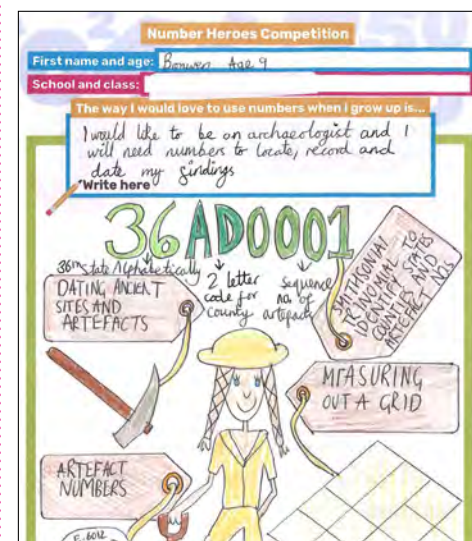 Number Heroes Competition
First name and age: Bronwen Age 9
School and class:
The way I would love to use numbers when I grow up is...
I would like to be an archaeologist and I
will need numbers to locate, record and
date my findings
Write here
36AD0001
36th state Alphabetically
2 letter
code for
County
sequence
no. of
artefact
SMITHSONIAN
TRINOMIAL TO
IDENTIFY STATES
COUNTIES AND
ARTEFACT NOS.
DATING ANCIENT
SITES AND
ARTEFACTS
MEASURING
OUT A GRID
ARTEFACT
NUMBERS